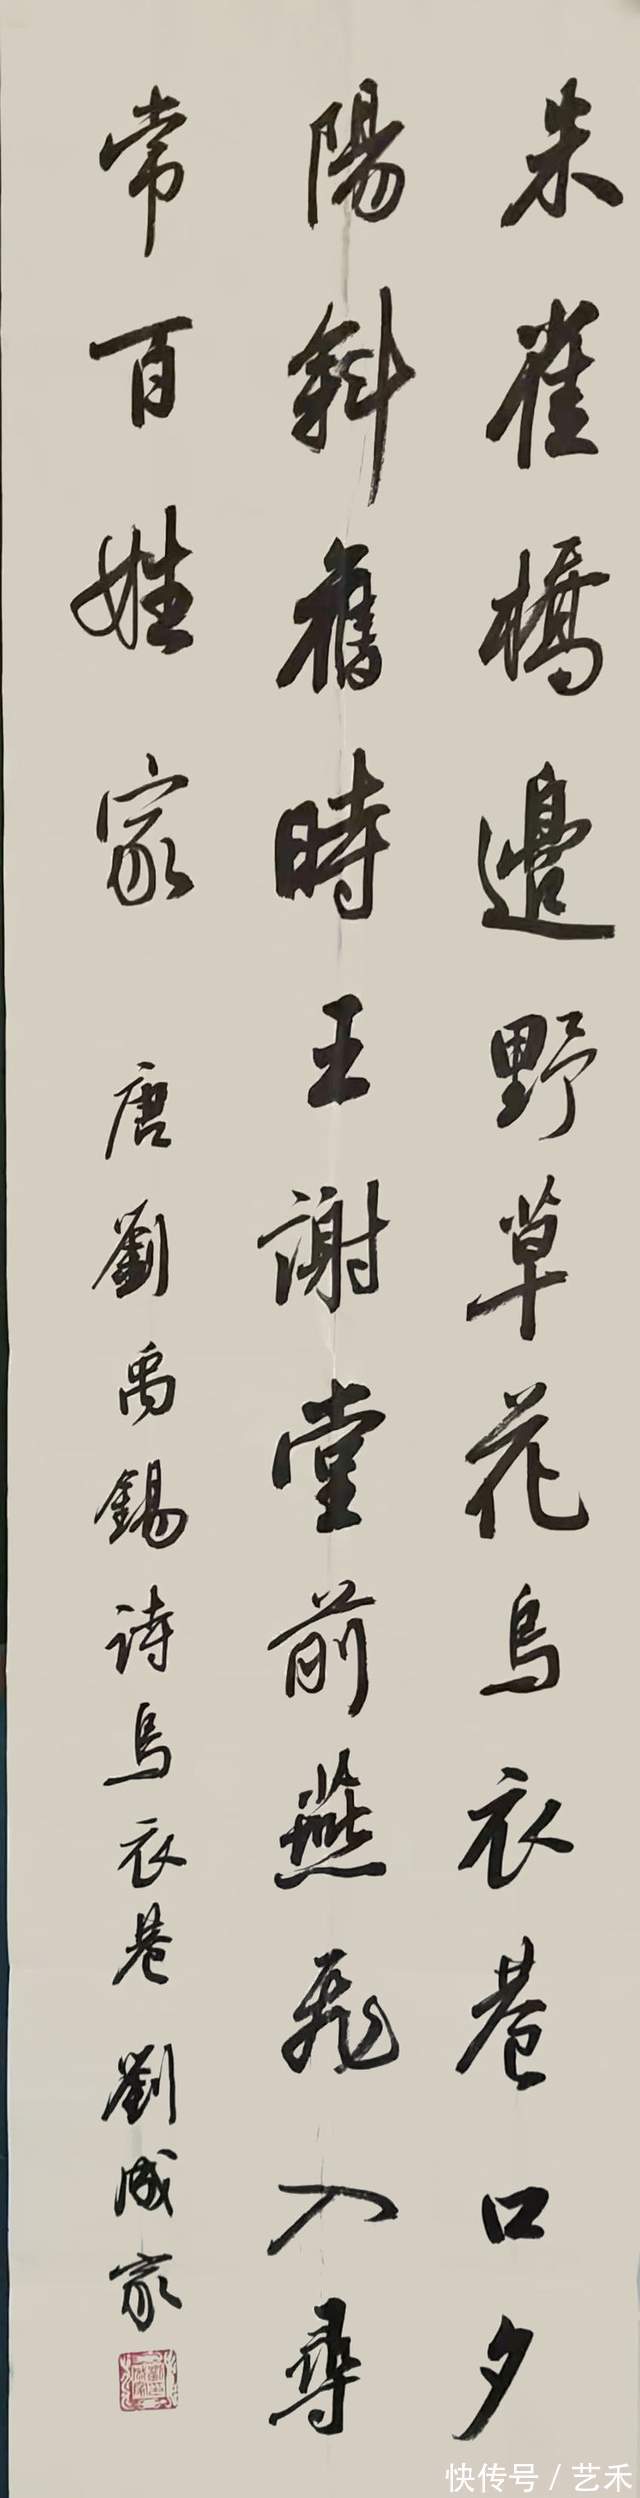 朱雀橋邊野草花烏衣巷口夕
陽斜舊時王謝堂前燕飛入尋
常百姓家
唐劉禹錫詩烏衣巷劉成家
快传号/艺禾